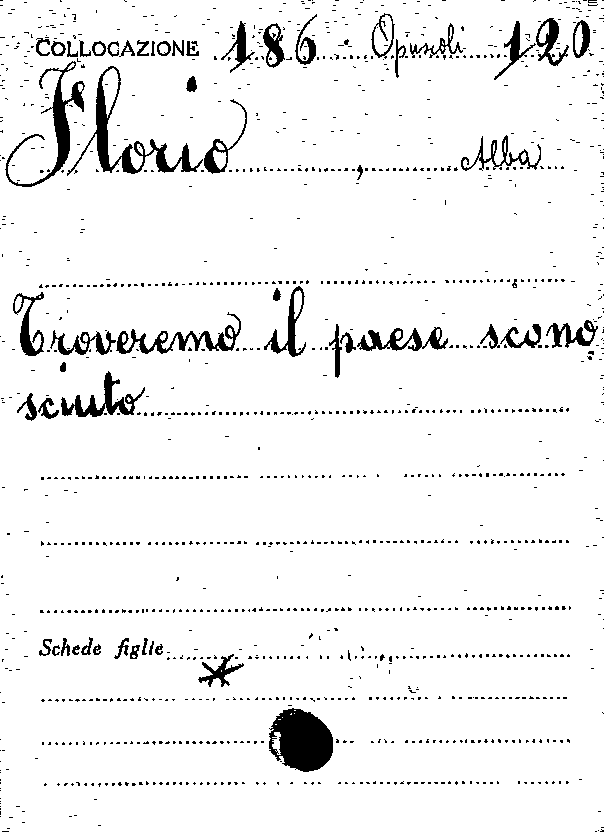 COLLOCAZIONE 186 · Opuscoli 120
Florio, Alba
Troveremo il paese scono
sciuto
Schede figlie